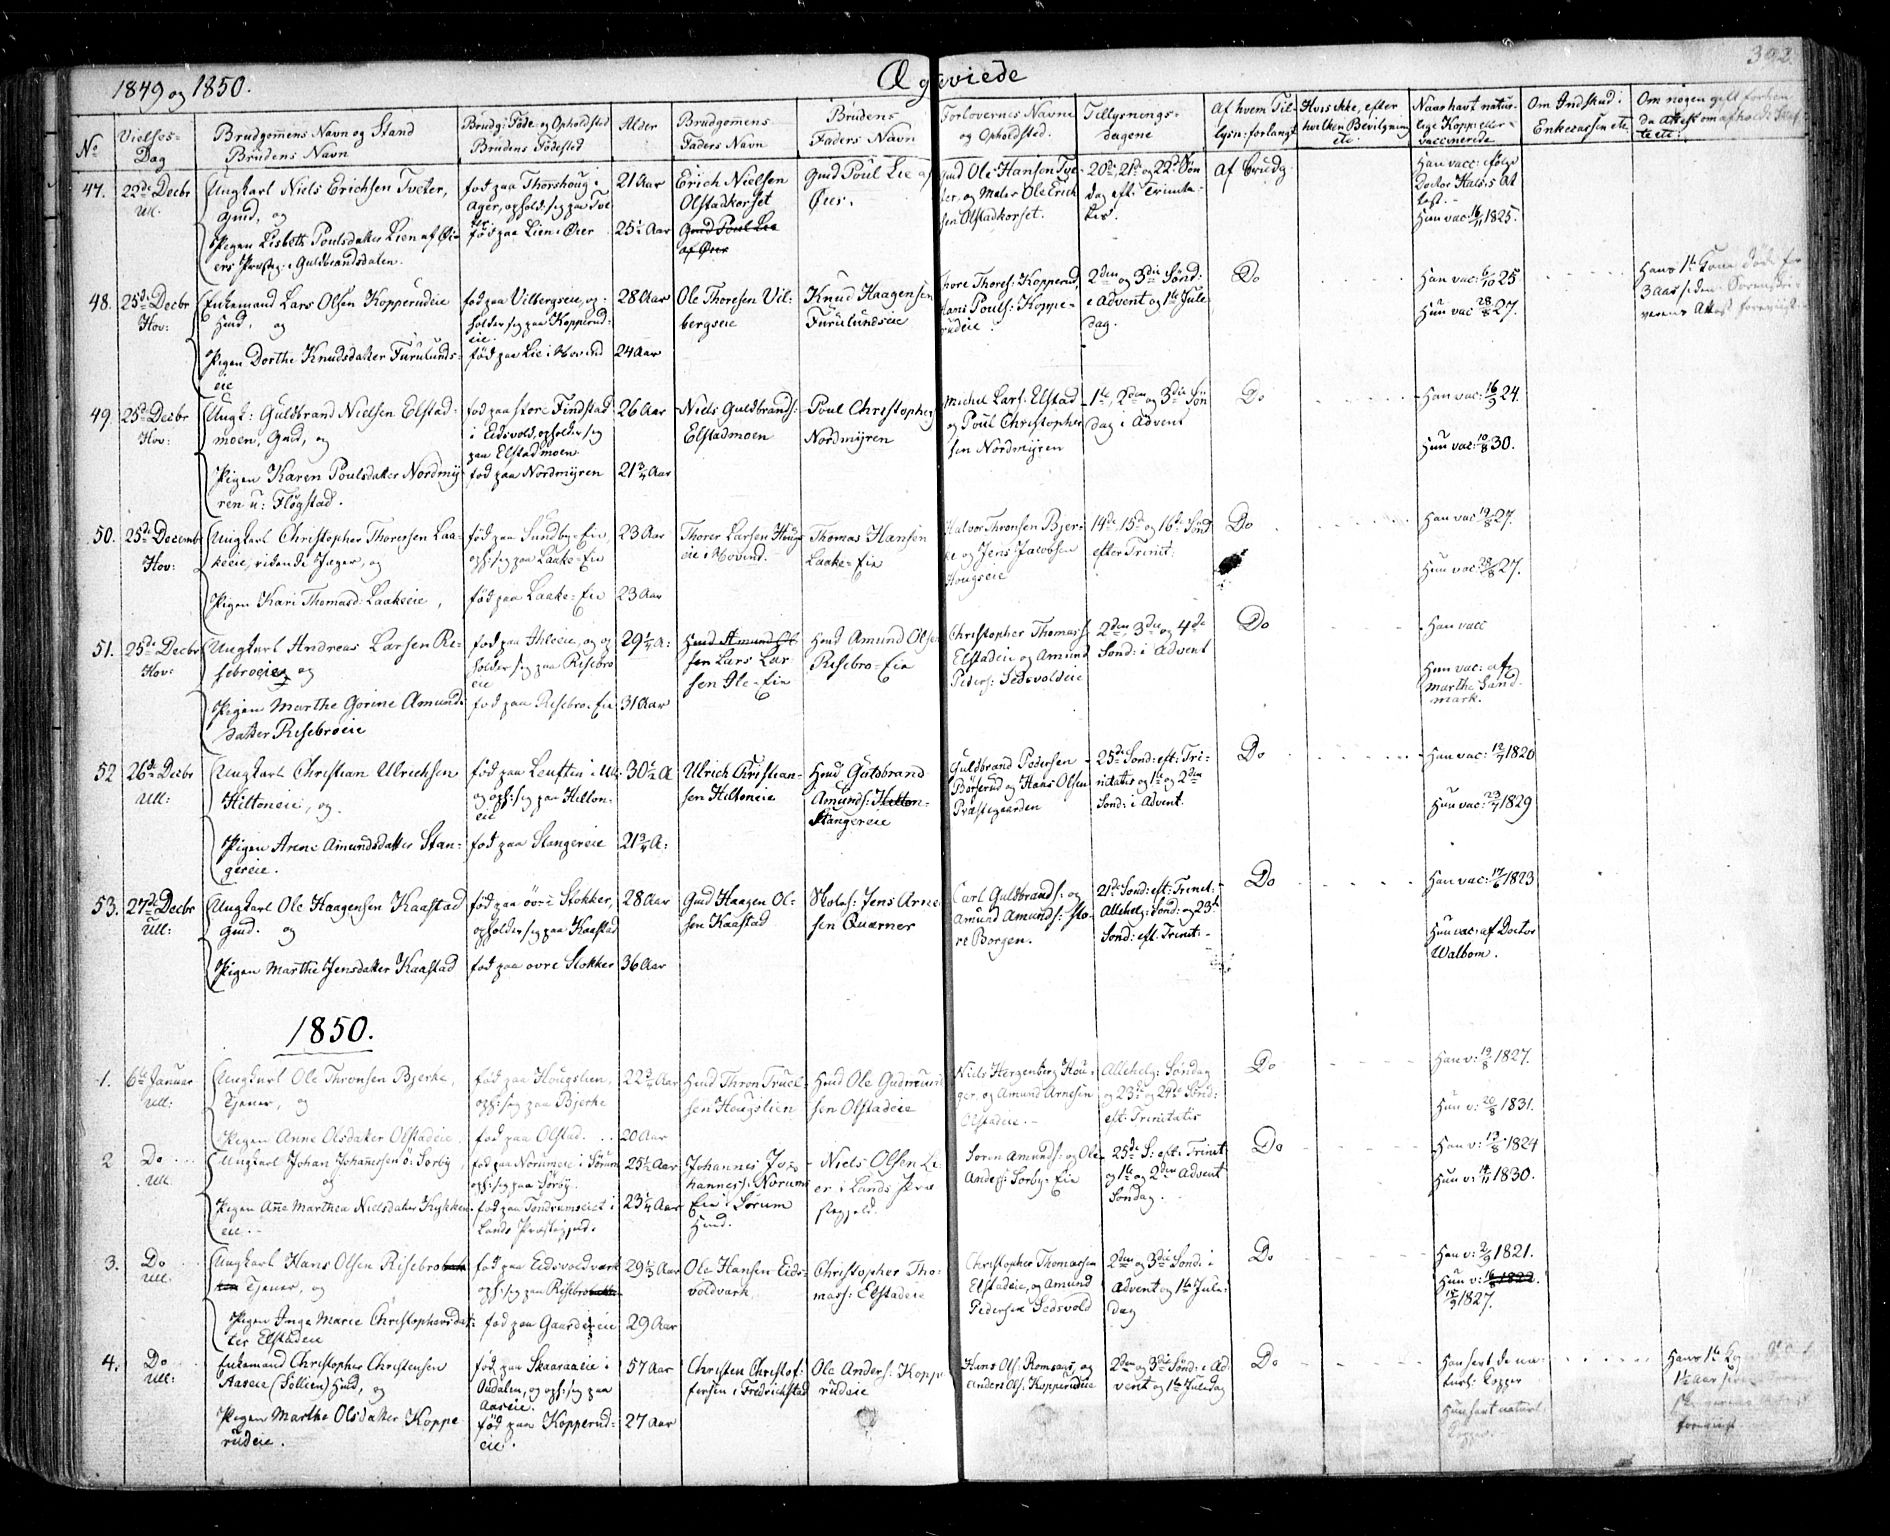 1849 og 1850.
Ægteviede
392.
No
Vielses-Dag
Brudgomens Navn og Stand
Brudens Navn
Brudg: Føde og Opholdsted
Brudens Fødested
Alder
Brudgomens
Faders Navn
Brudens
Faders Navn
Forlovernes Navne
og Opholdsted.
Tillysnings-
dagene
Af hvem Til-
lysn: forlangt
Hvis ikke, efter
hvilken Bevilgning
etc.
Naar havt natur-
lige Kopper eller
vaccinerede
Om Indskud i
Enkecassen etc.
Om nogen gift forhen
47.
22de Decbr
Ull.
Ungkarl Niels Erichsen Tveter,
Gmd, og
Pigen Lisbeth Poulsdatter Lien af Øi-
ers Præsteg: i Guldbrandsdalen.
fød paa Thorshoug i
Ager, ophold: sig paa Tve
ter
fød paa Lien i Øier
21 Aar
25½ Aar
Erich Nielsen
Olstadkorset
Gmd Poul Lie
af Øier
Gmd Poul Lie af
Øier.
Gmd Ole Hansen Tve-
ter, og Maler Ole Erich
sen Olstadkorset.
20de, 21de og 22de Søn
dag eft: Trinita-
tis.
af Brudg.
Han vacc: ifølge
Doctor Hals's At
test.
Hun vac: 16/11 1825.
48.
25de Decbr
Hov:
Enkemand Lars Olsen Kopperudeie
Hmd, og
Pigen Dorthe Knudsdatter Furulunds-
eie
fød paa Vilbergseie, op-
holder sig paa Kopperud-
eie.
fød paa Lie i Hovind
28 Aar
24 Aar
Ole Thoresen Vil-
bergseie
Knud Haagensen
Furulundseie
Thore Thores: Kopperud,
Hans Pouls: Koppe-
rudeie
2den og 3die Sønd:
i Advent og 1ste Jule
dag.
Do
Han vac: 6/10 25
Hun vac 28/8 27.
Hans 1ste Kone døde for
3 Aar siden.
49.
25de Decbr
Hov:
Ungk: Guldbrand Nielsen Elstad-
moen, Gmd, og
Pigen Karen Poulsdatter Nordmy-
ren u: Fløgstad.
fød paa store Findstad
i Eidsvold, opholder sig
paa Elstadmoen.
fød paa Nordmyren
26 Aar
21¾ Aar
Niels Guldbrands:
Elstadmoen
Poul Christophers
Nordmyren
Michel Lars: Elstad
og Poul Christopher
sen Nordmyren
1ste, 2den og 3die Søn
dag i Advent
Do
Han vac: 16/9 24.
Hun vac: 10/8 30.
50.
25de Decemb
Hov:
Ungkarl Christopher Thoresen Laa-
keeie, ridende Jæger, og
Pigen Kari Thomasd: Laakeeie,
fød paa Sundby-Eie,
oph: sig paa Laake-Eie
fød paa Laake-Eie
23 Aar
23 Aar
Thorer Larsen Houg
eie i Hovind.
Thomas Hansen
Laake-Eie
Halvor Thronsen Bjer-
ke og Jens Jacobsen
Hougseie
14de, 15de og 16de Sønd
efter Trinit:
Do
Han vac 12/8 27.
Hun vac 28/8 27.
51.
25de Decbr
Hov:
Ungkarl Andreas Larsen Ri-
sebroeie og
Pigen Marthe Gorine Amunds
datter Risebroeie
fød paa Ihleeie, og op
holder sig paa Risebro
eie
fød paa Risebro-Eie
29¼ A:
31 Aar
Hmd Amund Ol-
sen Lars Lar
sen Ile-Eie
Hmd Amund Olsen
Risebro-Eie
Christopher Thomass
Elstadeie og Amund
Peders: Sedsvoldeie
2den, 3die og 4de
Sønd: i Advent
Do
Han vacc
Hun vac: af
Marthe Sand-
mark.
52
26de Decbr
Ull:
Ungkarl Christian Ulrichsen
Hiltoneie, og
Pigen Arene Amundsdatter Stan-
gereie.
fød paa Leuften i Ull:
og oph: sig paa Hilton-
eie
fød paa Stangereie
30½ A
21¾ A:
Ulrich Christian-
sen Hiltoneie
Hmd Gutsbrand
Amunds: Hilton-
Stangereie
Guldbrand Pedersen
Børserud og Hans Olsen
Præstegaarden
25de Sønd: eft: Tri-
nitatis og 1ste og 2den
Sønd: i Advent.
Do
Han vac: 12/7 1820
Hun vac: 23/7 1829
53.
27de Decbr
Ull:
Ungkarl Ole Haagensen Kaastad
Gmd. og
Pigen Marthe Jensdatter Kaastad
fød paa øvre Stokker,
opholder sig paa Kaastad
fød paa øvre Stokker
28 Aar
36 Aar
Gmd Haagen Ol-
sen Kaastad
Jens Arne
sen Quærner
Carl Guldbrands: og
Amund Amunds: sto-
re Borgen.
21de Sønd: eft: Trinit:
Allehelg: Sønd: og 23de
Sønd: eft. Trinit:
Do
Han vac: 17/6 1823
Hun vac: af Doctor
Walbom.
1850.
1.
6te Januar
Ull:
Ungkarl Ole Thronsen Bjerke,
Tjener, og
Pigen Anne Olsdatter Olstadeie
fød paa Hougslien,
oph: sig paa Bjerke
fød paa Olstad.
22¾ Aar
20 Aar
Hmd Thron Truel-
sen Hougslien
Hmd Ole Gudmund
sen Olstadeie
Niels Herzenberg Hou-
ger, og Amund Arnesen
Olstadeie.
Allehelg: Søndag
og 23de og 24de Sønd:
eft: Trinitatis
Do
Han v: 19/8 1827.
Hun v: 20/8 1831.
2
Do
Ull:
Ungkarl Johan Johannesen ø: Sørby,
og
Pigen Anne Marthea Nielsdatter Kykken-
eie.
fød paa Norumeie i Sørum
oph: sig paa Sørby.
fød paa Tondrumseiet i
Lands Præstegjeld.
25½ Aar
23¼ Aar
Johannes Jo-
hanness: Norum
Eie i Sørum
Hmd.
Niels Olsen Li-
er i Lands Præ
stegjeld.
Søren Amunds: og Ole
Anders: Sørby-Eie
25de S: eft: Trinit
og 1ste og 2den Advent
Søndag.
Do
Han v: 12/8 1824
Hun v: 14/11 1830.
3.
Do
Ull.
Ungkarl Hans Olsen Risebrobak-
ken Tjener, og
Pigen Inge Marie Christophersdat-
ter Elstadeie
fød paa Eidsvoldværk
oph: sig paa Risebrobakken
fød paa Gaardereie
29⅓ Aar
29 Aar
Ole Hansen Eids-
voldværk
Christopher Tho-
mass: Elstadeie
Christopher Thomassen
Elstadeie, og Amund
Pedersen Sedsvold
2den og 3die Sønd: i
Advent og 1ste Jule-
dag
Do
Han v: 2/9 1821.
Hun v: 16/8 1822.
18/9 1827.
4.
Do
Ull:
Enkemand Christopher Christensen
Aaseie (Sollien) Hmd, og
Pigen Marthe Olsdatter Koppe
rudeie.
fød paa Skaaraaeie i
Oudalen, og oph: sig paa
Aaseie.
fød paa Kopperud-
eie.
57 Aar
27 Aar
Christen Christof-
fersen i Fredrichstad
Ole Anders: Koppe
rudeie
Hans Ols: Romsaas, og
Anders Ols: Kopperudeie
2den og 3die Sønd: i Ad
vent og 1ste Juledag
Do
Han havt de na-
turl: Kopper
Hun havt naturl.
Kopper.
Hans 1ste
1½ Aar siden
forevist